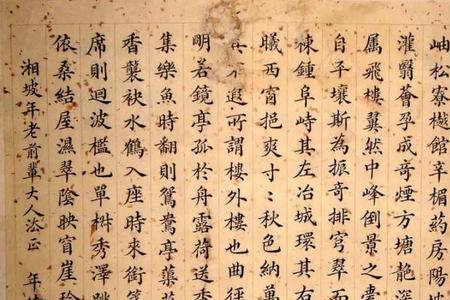 岫松寮樾館辛楣药房陽
灌翳薈孕成奇煙方塘静深
属飛樓翼然中峰倒景之臺
自平壤斯為振奇排穹翠
棟鍾阜峙其左冶城環其右
曦西窗挹爽寸〻秋色納萬
不遐所謂樓外樓也曲徑
明若鏡亭孤於舟露荷送香
集樂魚時翻則鴛鴦亭蕖
香襲袂水鶴入座時來銜
席則迴波檻也單椒秀澤跳
依桑結屋濕翠陰映窗崖玲
湘坡年老前輩大人法正 年